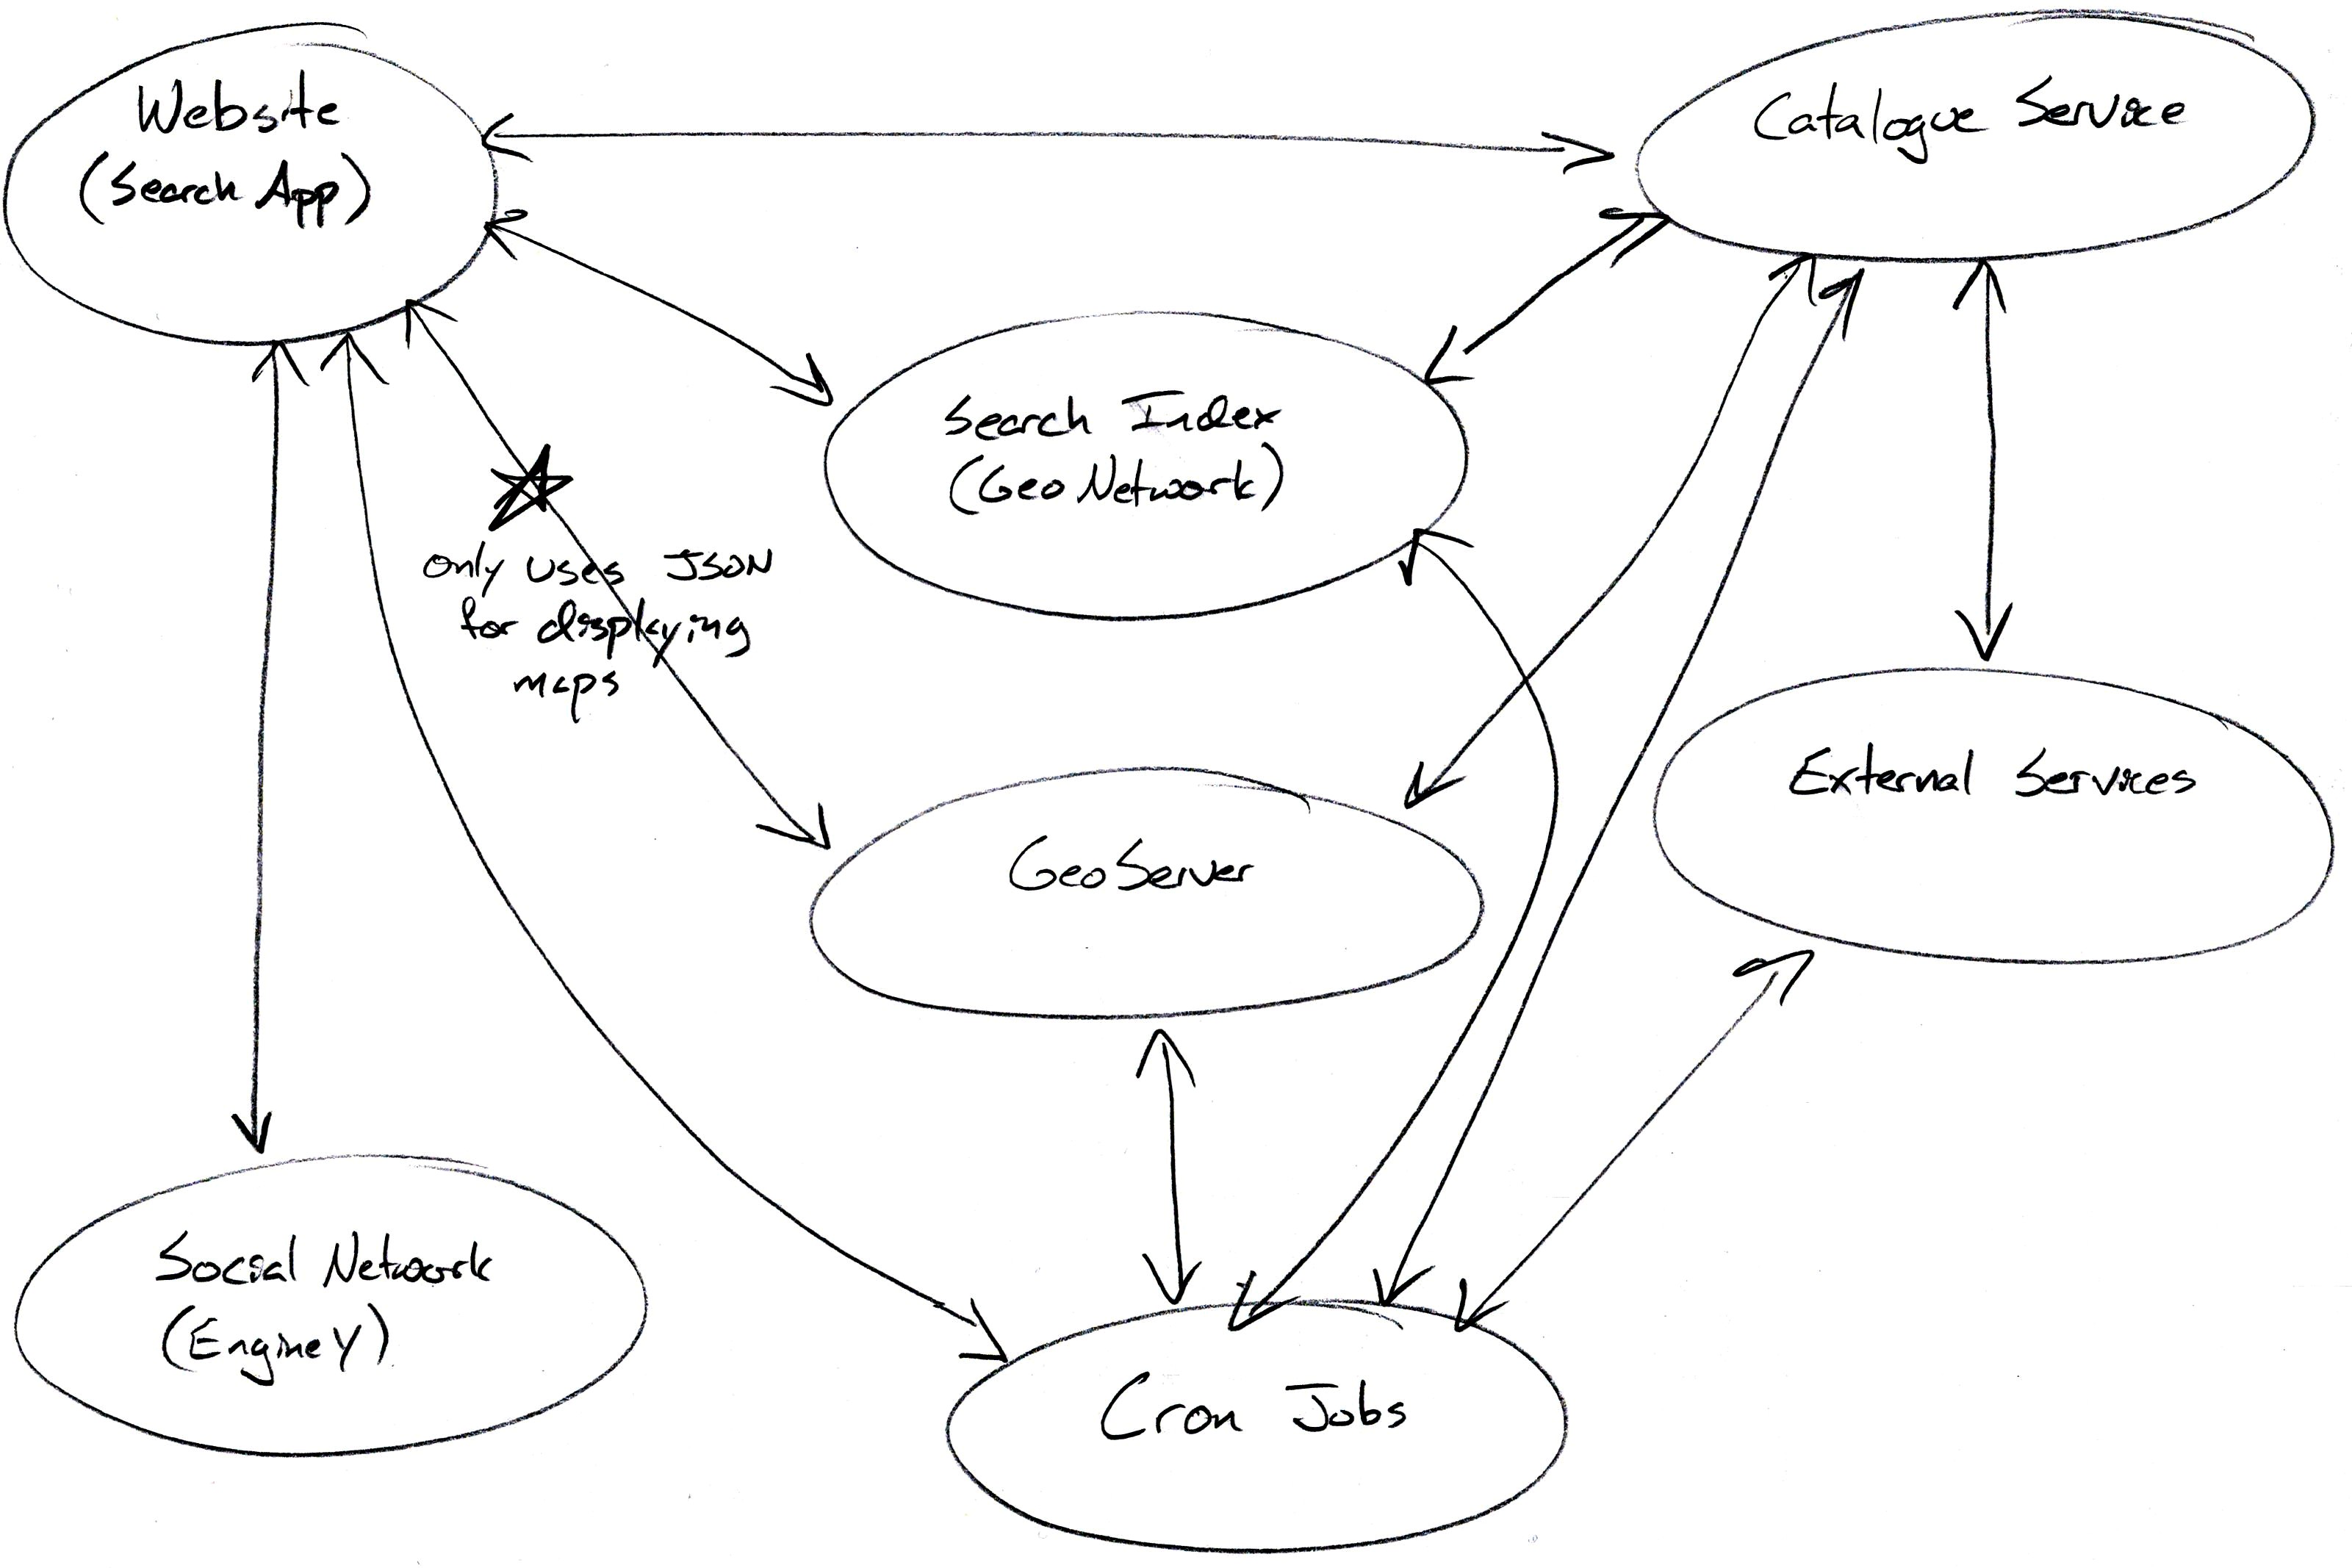 Website
(Search App)
Catalogue Service
Search Index
(GeoNetwork)
Only uses JSON
for displaying
maps
External Services
GeoServer
Social Network
(EngineY)
Cron Jobs